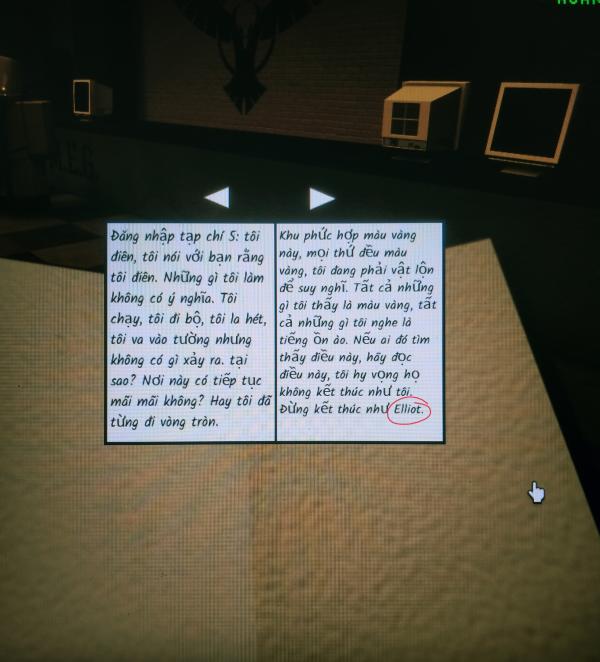 Đăng nhập tạp chí 5: tôi
điên, tôi nói với bạn rằng
tôi điên. Những gì tôi làm
không có ý nghĩa. Tôi
chạy, tôi đi bộ, tôi la hét,
tôi va vào tường nhưng
không có gì xảy ra. tại
sao? Nơi này có tiếp tục
mãi mãi không? Hay tôi đã
từng đi vòng tròn.
Khu phức hợp màu vàng
này, mọi thứ đều màu
vàng, tôi đang phải vật lộn
để suy nghĩ. Tất cả những
gì tôi thấy là màu vàng, tất
cả những gì tôi nghe là
tiếng ồn ào. Nếu ai đó tìm
thấy điều này, hãy đọc
điều này, tôi hy vọng họ
không kết thúc như tôi.
Đừng kết thúc như Elliot.